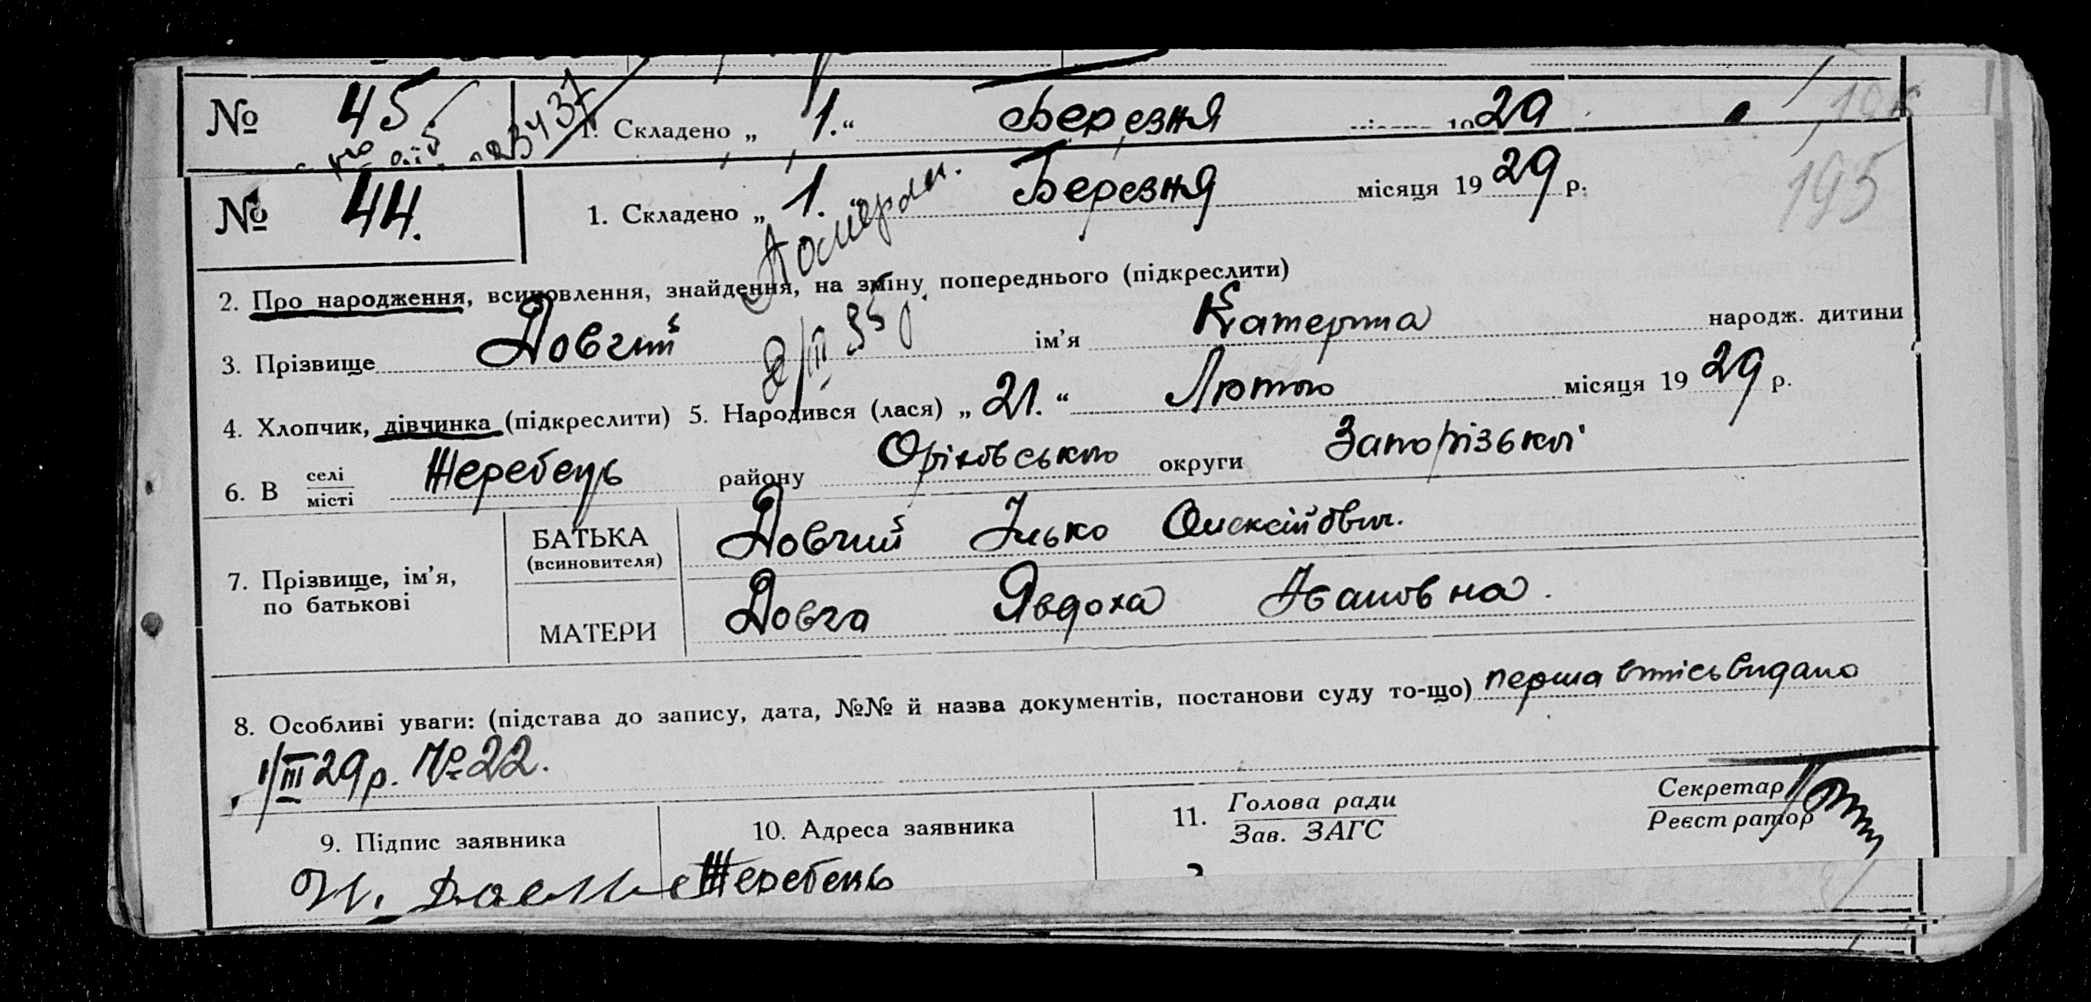 № 45
1. Складено „ 1. “ Березня 1929
№ 44.
1. Складено „ 1. Березня місяця 1929 р.
195
2. Про народження, всиновлення, знайдення, на зміну попереднього (підкреслити)
3. Прізвище Довгий ім’я Катерина народж. дитини
4. Хлопчик, дівчинка (підкреслити) 5. Народився (лася) „ 21. “ Лютого місяця 1929 р.
6. В селі місті Жеребець району Оріховського округи Запорізької
7. Прізвище, ім’я, по батькові
БАТЬКА (всиновителя) Довгий Ілько Олексійович.
МАТЕРИ Довга Явдоха Івановна.
8. Особливі уваги: (підстава до запису, дата, №№ й назва документів, постанови суду то-що) перша випись видано
1/III 29 р. № 22.
9. Підпис заявника
10. Адреса заявника
11. Голова ради Зав. ЗАГС
Секретар Реєстратор
Жеребець